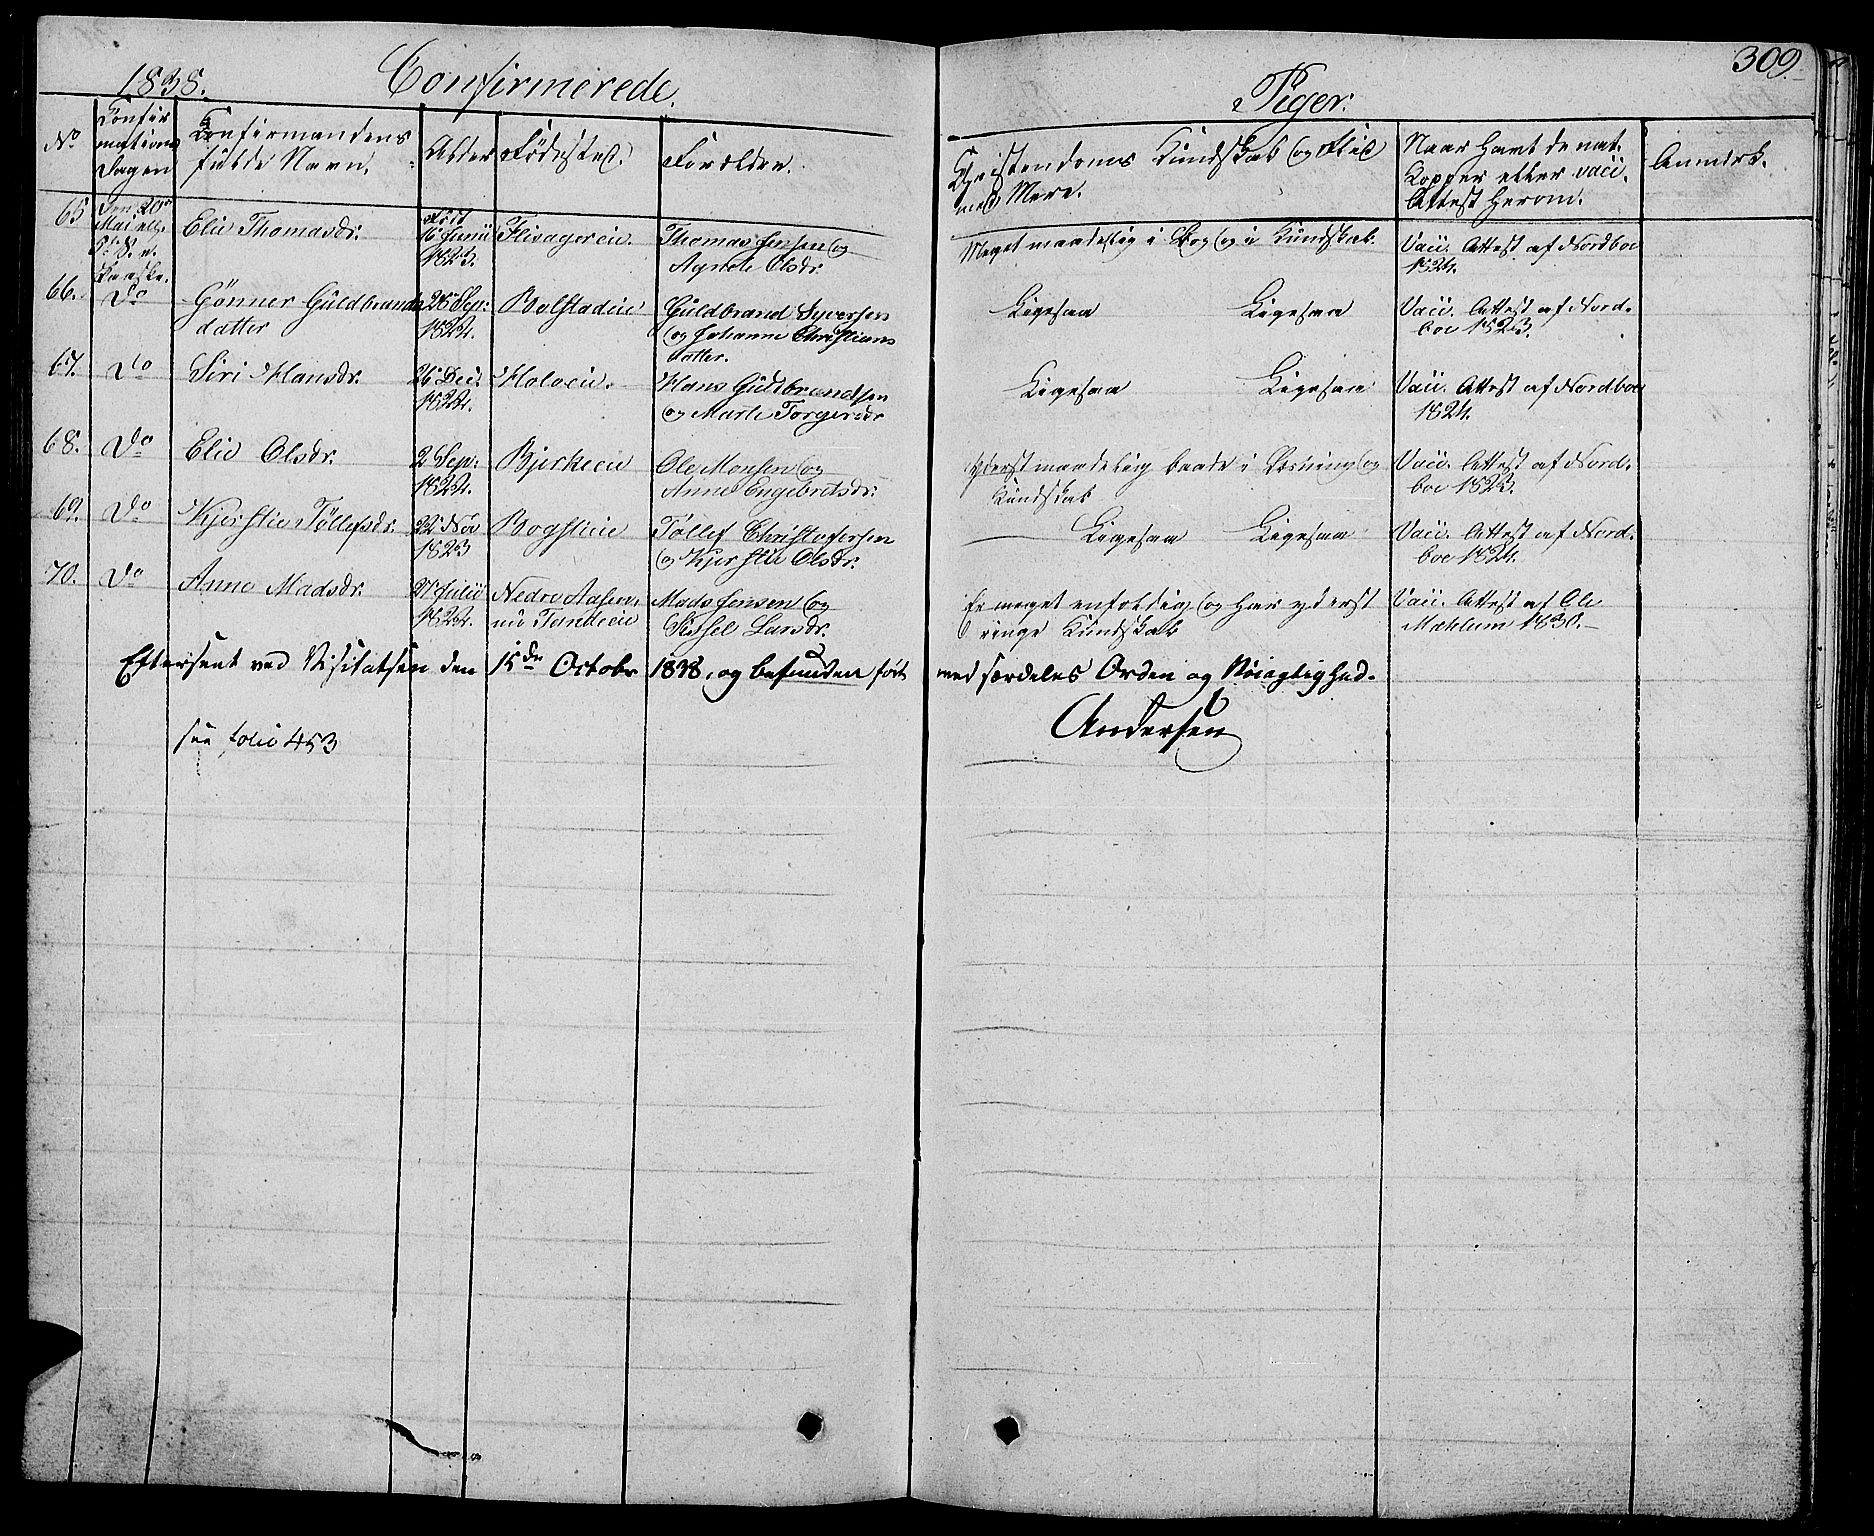 309
1838. Confirmerede Piger.
No
Confir
mations
Dagen
Confirmandens
fulde Navn.
Alder
Fødested.
Forældre.
Christendoms Kundskab og Flid
med Mere.
Naar havt de nat.
Kopper eller vacc.
Attest herom.
Anmerk.
65
den 20de
Mai
Paaske.
Elie Thomasdr.
Født
16 Junii
1823.
Flisagereie.
Thomas Jensen og
Agnete Olsdr.
Meget maadelig i Bog og i Kundskab.
Vacc. Attest af Nordboe
1824.
66.
Do
Gönner Guldbrands
datter
1824.
Bolstadeie
Guldbrand Syversen
og Johanne Christians
datter.
Ligesaa Ligesaa
Vacc. Attest af Nord-
boe 1823.
67.
Do
Siri Hansdr.
26 Dec.
1824.
Holoeie.
Hans Guldbrandsen
og Marte Torgersdr
Ligesaa Ligesaa
Vacc. Attest af Nordboe
1824.
68.
Do
Elie Olsdr.
2 Sep:
1824.
Bjerkeeie
Ole Monsen og
Anne Engebretsdr.
Yderst maadelig baade i Læsning og
Kundskab
Vacc. Attest af Nord-
boe 1823.
69.
Do
Kjerstie Tollefsdr.
22 Nov
1823
Bogstieie
Tollef Christofersen
og Kjerstie Olsdr.
Ligesaa Ligesaa
Vacc. Attest af Nord-
boe 1824.
70.
Do
Anne Madsdr.
27 Julii
1824.
Nedre Aasen,
Mads Jensen og
Sissel Larsdr.
Er meget enfoldig og har yderst
ringe Kundskab
Vacc. Attest af Ole
Mæhlum 1830.
Efterseet ved Visitatsen den 15de Octobr 1838, og befunden ført med særdeles Orden og Nøiagtighed.
Andersen
see folio 453